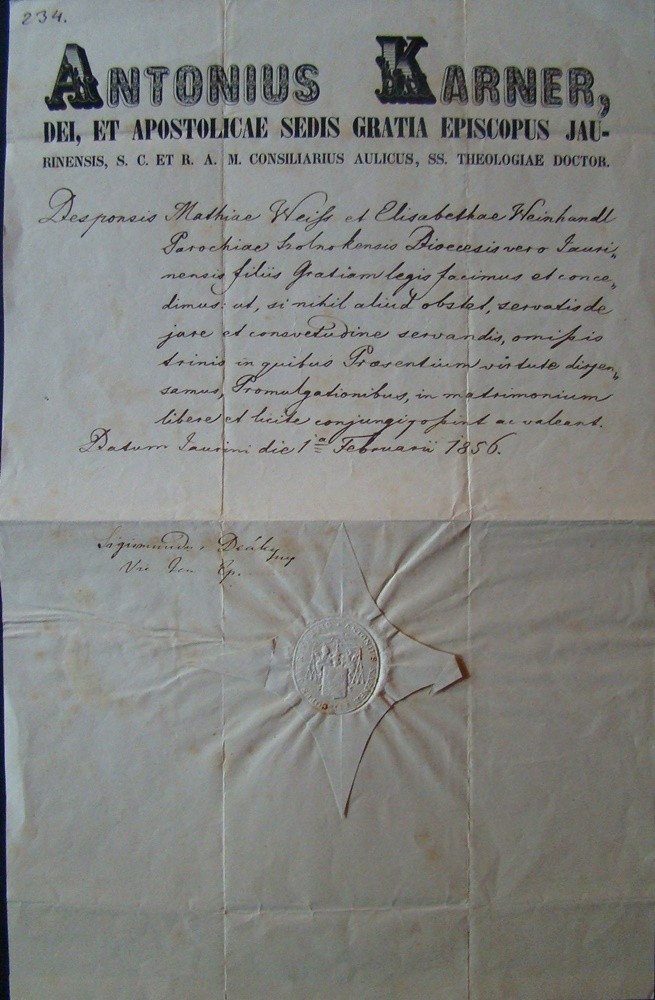 234.
ANTONIUS KARNER,
DEI, ET APOSTOLICAE SEDIS GRATIA EPISCOPUS JAU-
RINENSIS, S. C. ET R. A. M. CONSILIARIUS AULICUS, SS. THEOLOGIAE DOCTOR.
Desponsis Mathiae Weiss et Elisabethae Weinhandl
Parochiae Szolnokensis Dioecesis vero Jauri„
nensis filiis Gratiam legis facimus et conce„
dimus: ut, si nihil aliud obstet, servatis de
jure et consvetudine servandis, omissis
trinis in quibus Praesentium virtute dispen„
samus, Promulgationibus, in matrimonium
libere et licite conjungi possint ac valeant.
Datum Jaurini die 1a Februarii 1856.
Sigismundus Deáky